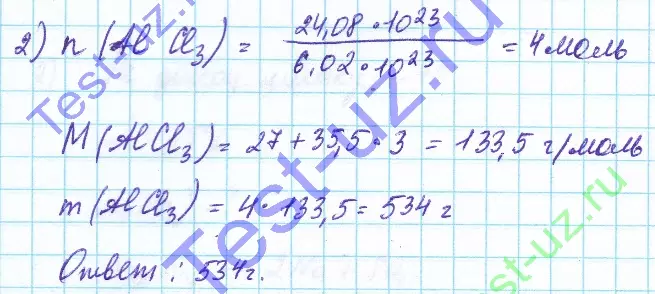 2) n (AlCl₃) = 24,08 • 10²³ / 6,02 • 10²³ = 4 моль
M (AlCl₃) = 27 + 35,5 • 3 = 133,5 г/моль
m (AlCl₃) = 4 • 133,5 = 534 г
Ответ: 534 г.
Test-uz.ru
Test-uz.ru